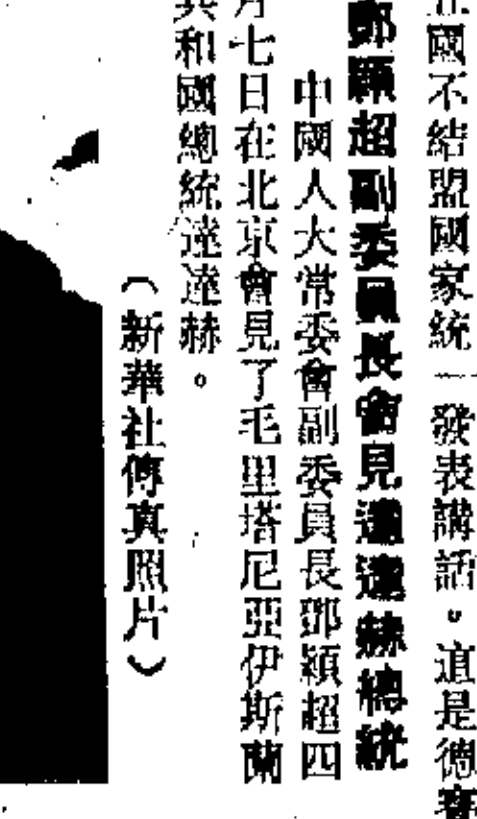 國不結盟國家統一發表講話。這是德
鄧穎超副委員長會見達達赫總統
中國人大常委會副委員長鄧穎超四
月七日在北京會見了毛里塔尼亞伊斯蘭
共和國總統達達赫。
（新華社傳真照片）